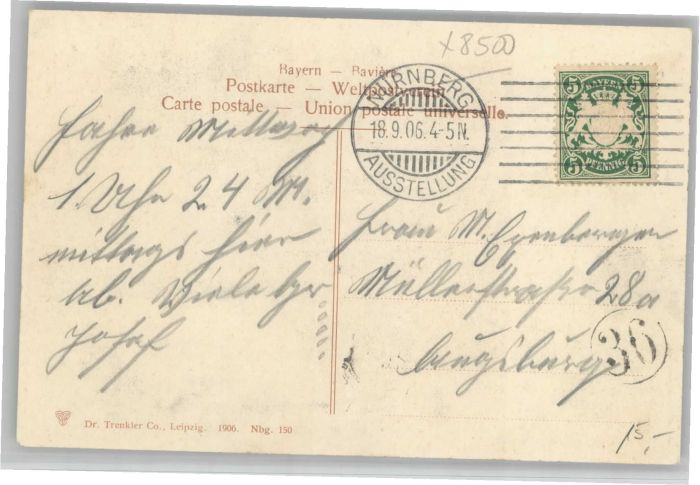 x8500
Bayern — Bavière
Postkarte — Weltpostverein
Carte postale — Union postale universelle.
NÜRNBERG
18.9.06. 4-5N.
AUSSTELLUNG
5 BAYERN 5
5 PFENNIG 5
Fahre Mittwoch
1. Uhr 24 M.
mittags hier
ab. Viele Gr
Josef
Frau M. Egenberger
Müllerstraße 28a
Augsburg
36
15,-
Dr. Trenkler Co., Leipzig. 1906. Nbg. 150